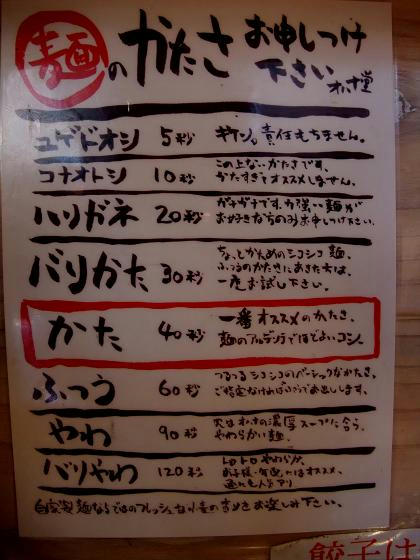 麺のかたさ お申しつけ
下さい
ユゲドオシ 5秒 キケン。責任もちません。
コナオトシ 10秒 この上ないかたさです。
かたすぎてオススメしません。
ハリガネ 20秒 ガチガチです。力強い麺が
お好きな方のみお申しつけ下さい。
バリかた 30秒 ちょっとかためのシコシコ麺、
ふつうのかたさにあきた方は、
一度お試し下さい。
かた 40秒 一番オススメのかたさ。
麺のアルデンテでほどよいコシ。
ふつう 60秒 つるつるシコシコのベーシックなかたさ。
ご指定なければふつうでお出しします。
やわ 90秒 の濃厚スープに合う
やわらかい麺。
バリやわ 120秒 トロトロやわらか。
お子様・年配にはオススメ。
自家製麺ならではのフレッシュな小麦の をお楽しみ下さい。
餃子は